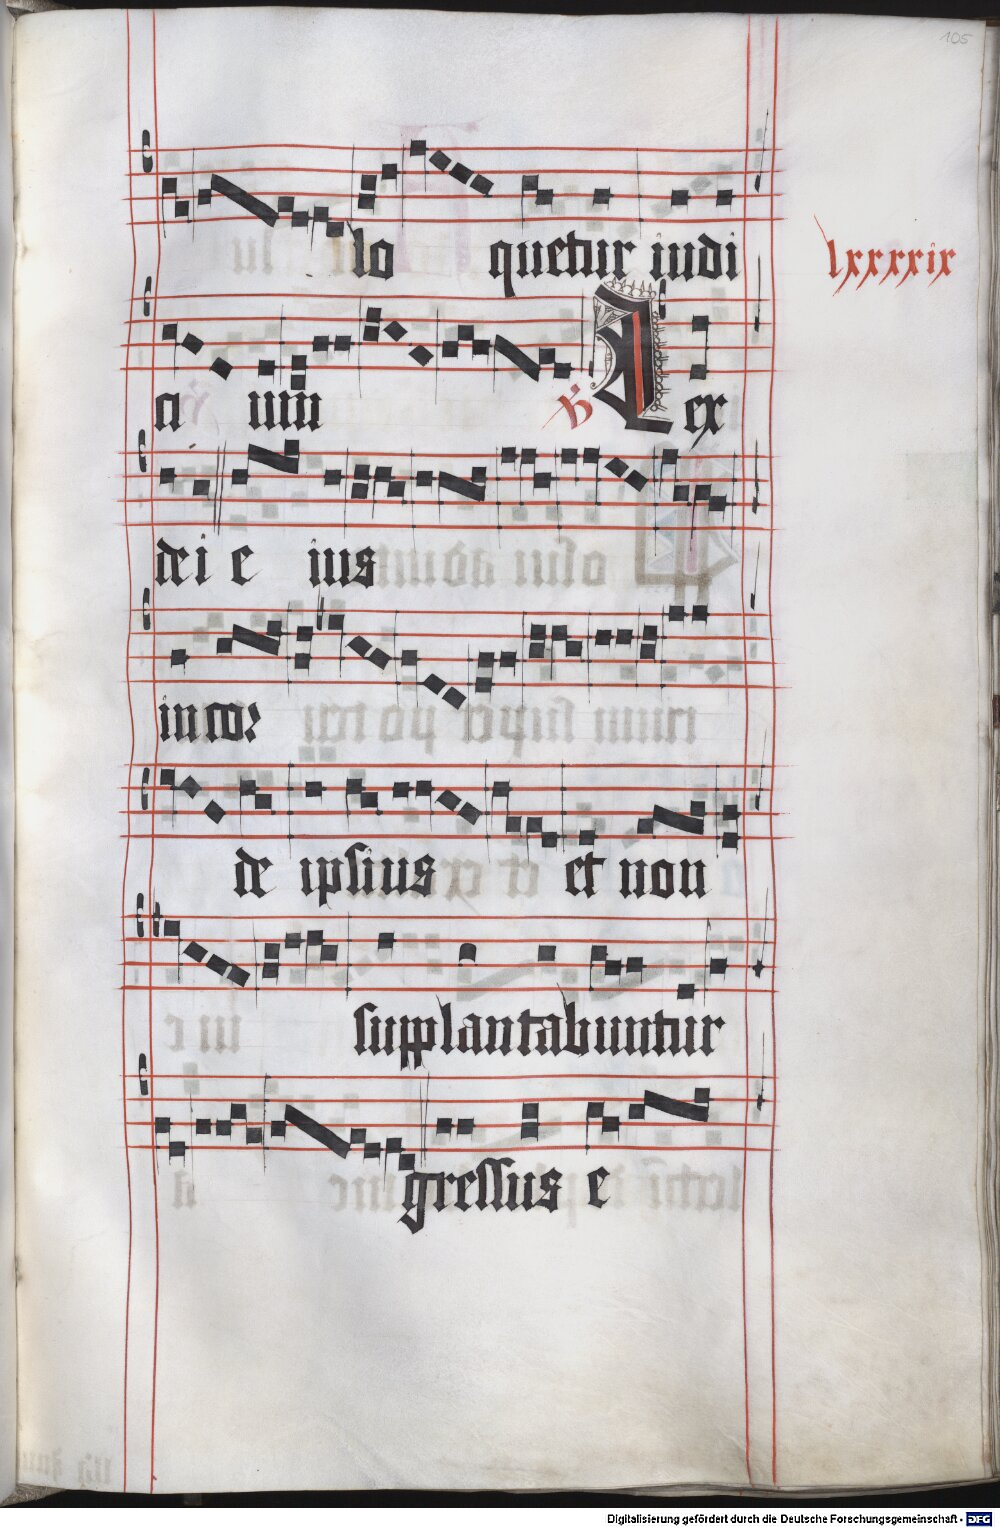 105
lo quetur iudi
lxxxxix
ci um ℣ Lex
dei e ius
in cor
de ipsius et non
supplantabuntur
gressus e
Digitalisierung gefördert durch die Deutsche Forschungsgemeinschaft - DFG